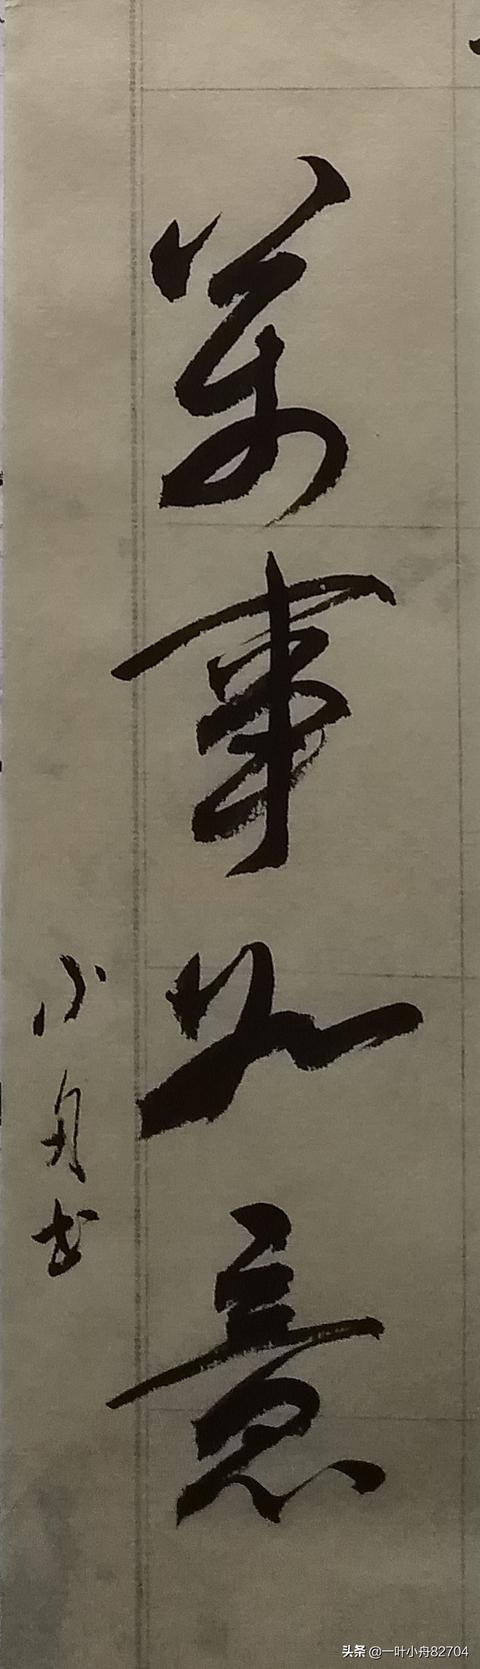 萬事如意
小舟书
头条 @一叶小舟82704